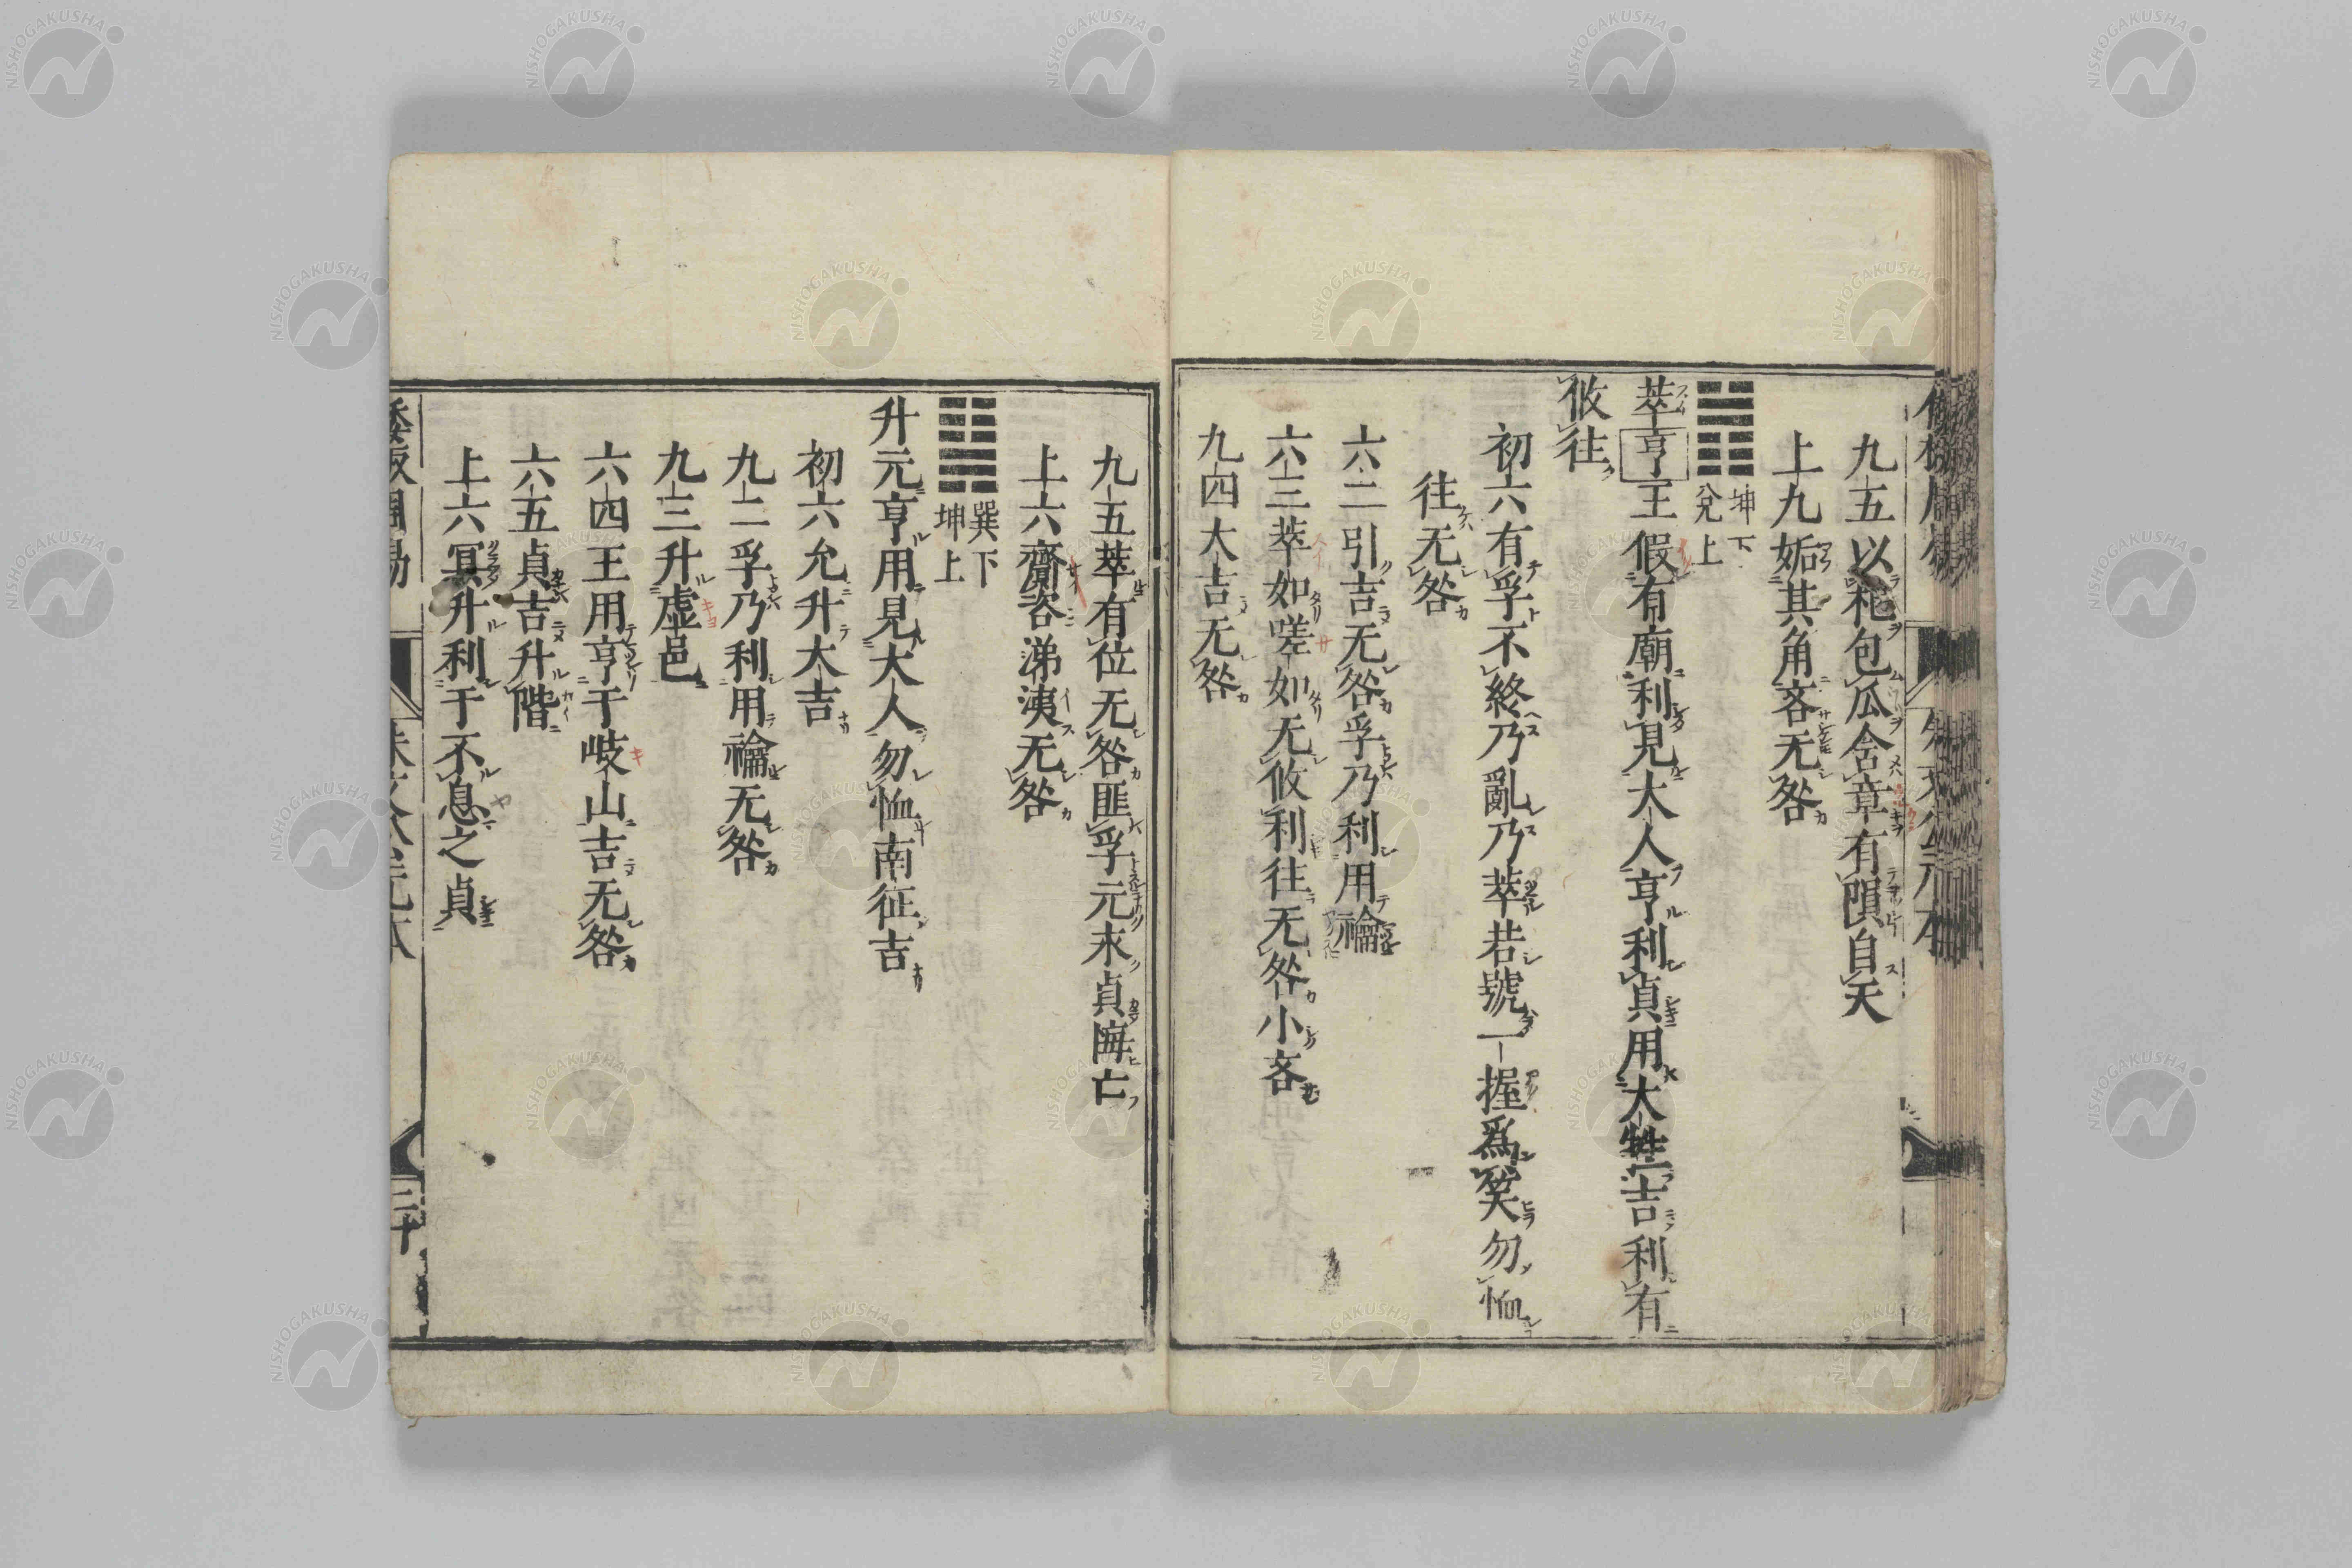 九五以杞包瓜含章有隕自天
上九姤其角吝无咎
坤下
兌上
萃亨王假有廟利見大人亨利貞用大牲吉利有
攸往
初六有孚不終乃亂乃萃若號一握爲笑勿恤
往无咎
六二引吉无咎孚乃利用禴
六三萃如嗟如无攸利往无咎小吝
九四大吉无咎
九五萃有位无咎匪孚元永貞悔亡
上六齎咨涕洟无咎
巽下
坤上
升元亨用見大人勿恤南征吉
初六允升大吉
九二孚乃利用禴无咎
九三升虛邑
六四王用亨于岐山吉无咎
六五貞吉升階
上六冥升利于不息之貞
倭板周易
朱文公元本
三十
NISHOGAKUSHA